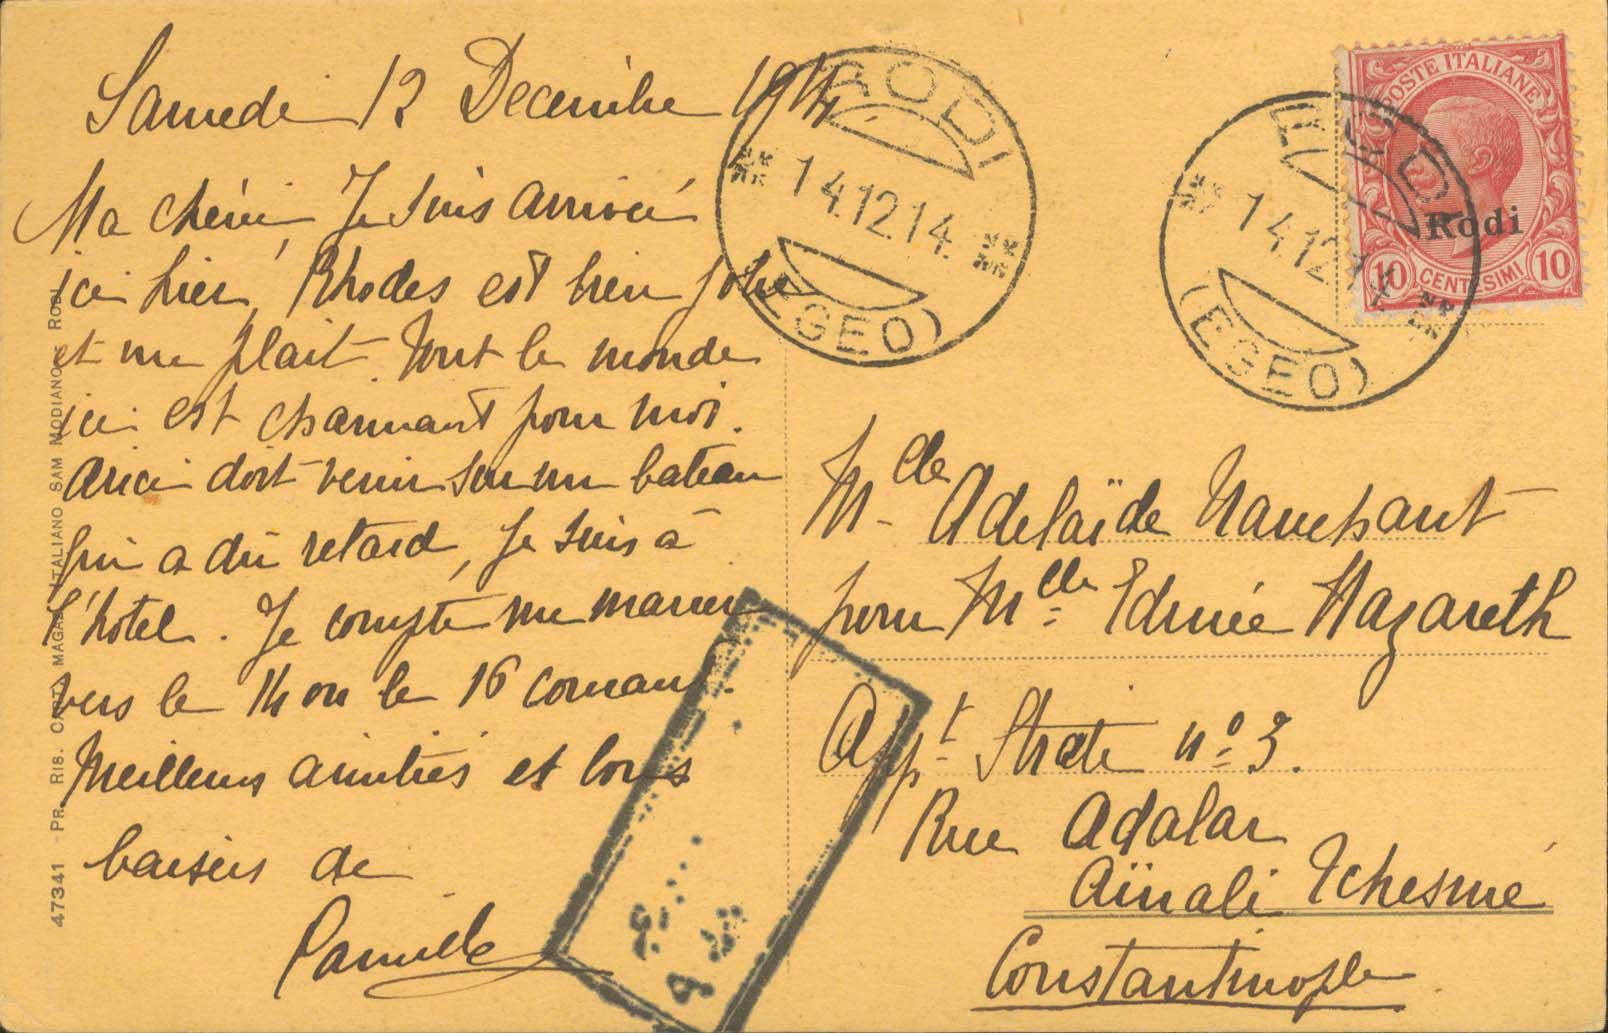 Samedi 12 Decembre 1914
Ma chérie, Je suis arrivée
ici hier, Rhodes est bien jolie
et me plait. Tout le monde
ici est charmant pour moi.
doit venir sur un bateau
qui a du retard, Je suis à
l'hotel. Je compte me marier
vers le 14 ou le 16 courant.
Meilleurs amitiés et bons
baisers de
Camille
47341 - PR. RIS. CART. MAGAZ. ITALIANO SAM MODIANO - RODI
RODI
14.12.14.
(EGEO)
RODI
14.12.14
(EGEO)
POSTE ITALIANE
Rodi
10 CENTESIMI 10
Mlle Adelaïde
pour Mlle Edmée Nazareth
Appt Strati no 3.
Rue Adalar
Aïnali Tchesmé
Constantinople